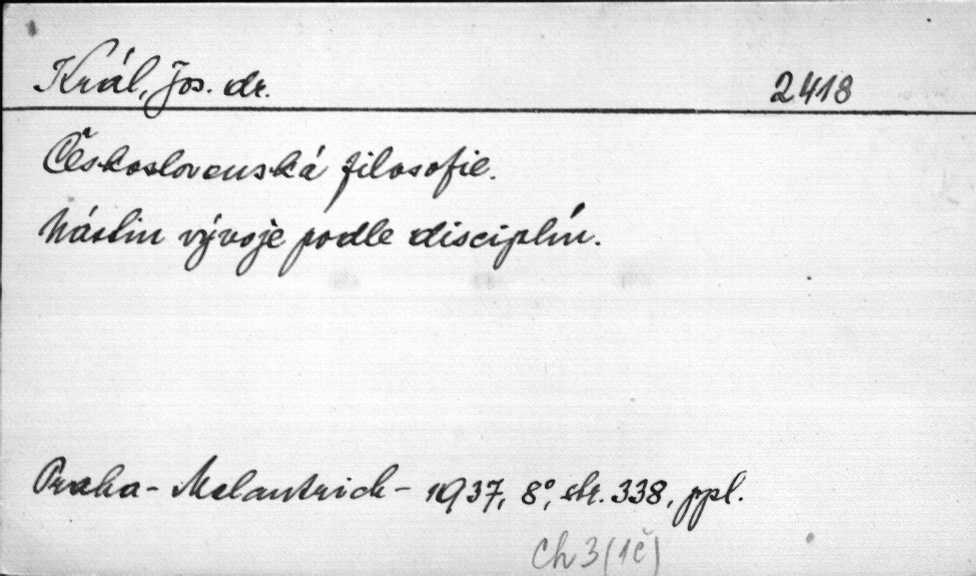 Král, Jos. dr. 2418
Československá filosofie.
Nástin vývoje podle disciplín.
Praha - Melantrich - 1937, 8°, str. 338, ppl.
Ch 3 (1č)